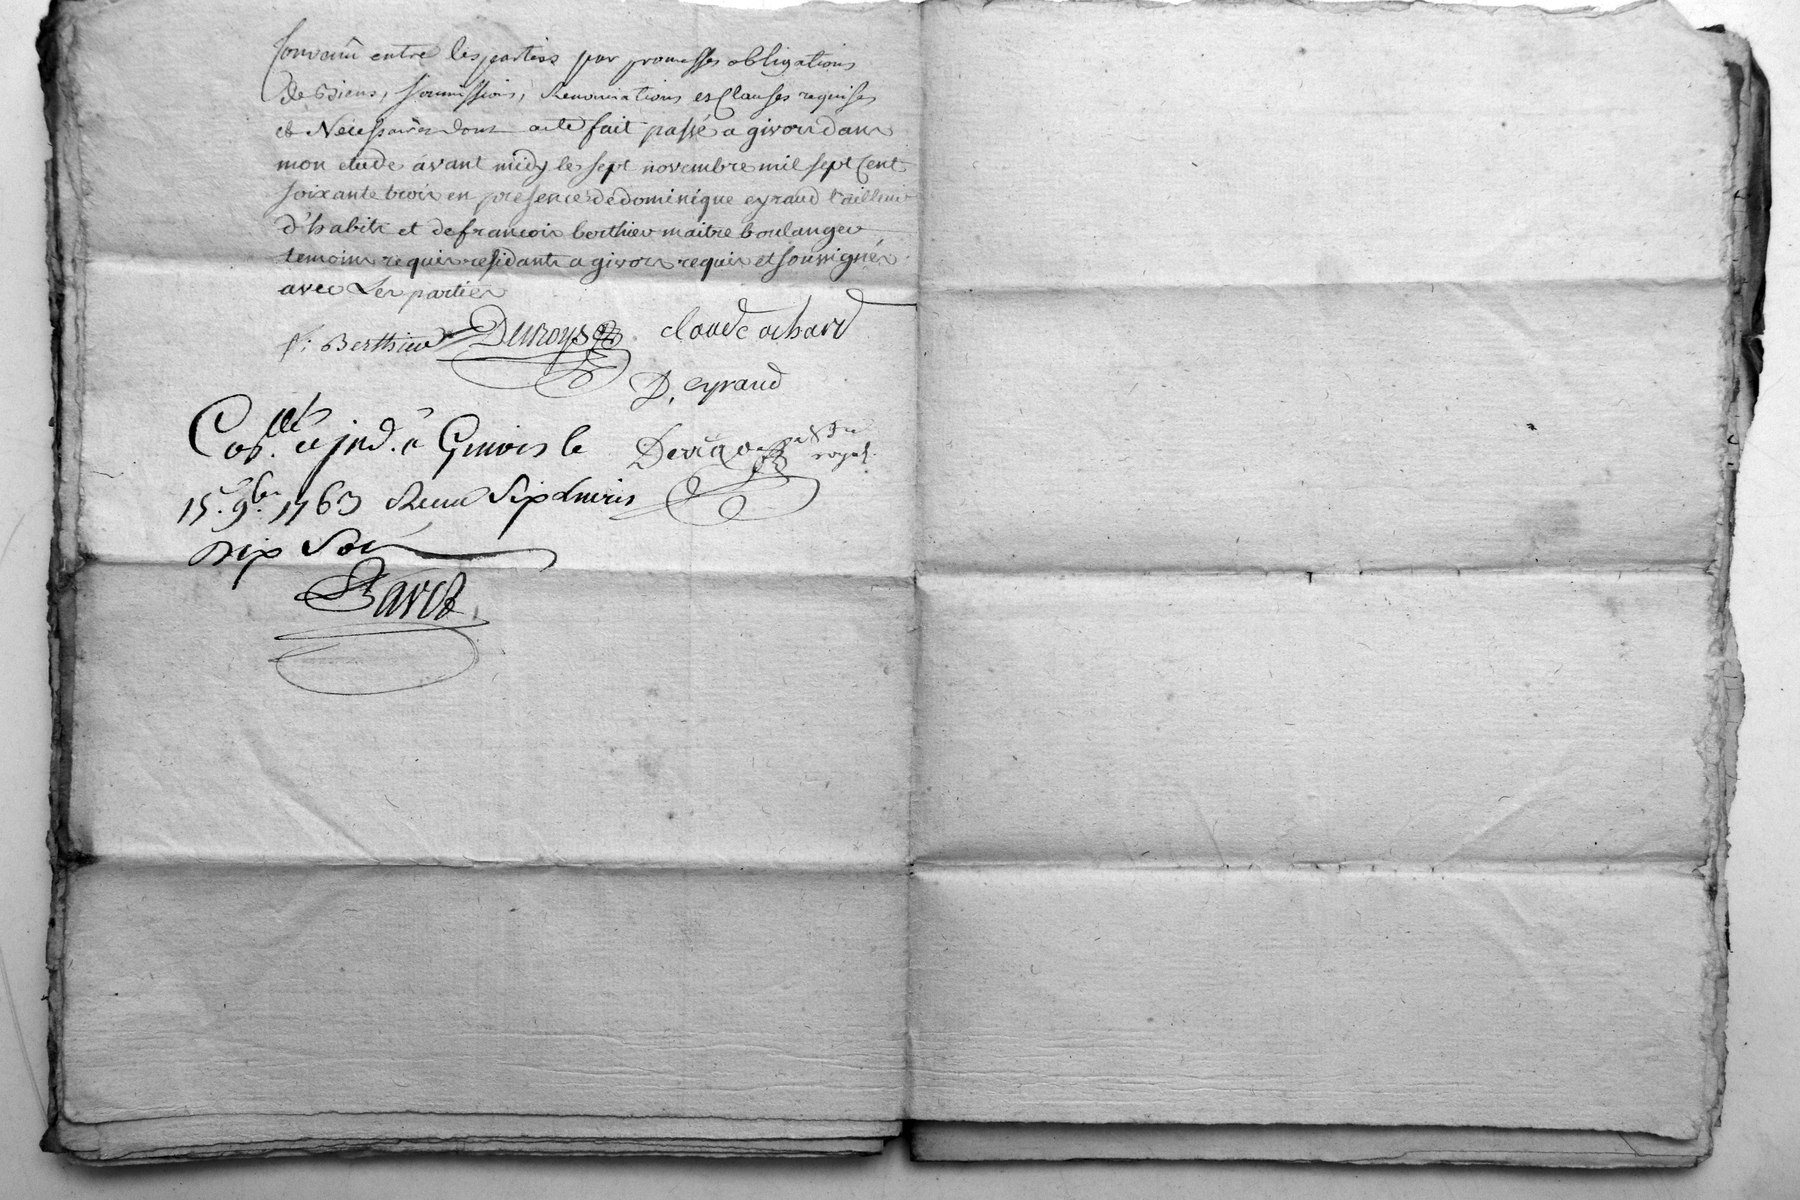 Convenu entre les parties par promesses obligations
de Biens, soumissions, Renonciations et Clauses requises
et Necessaires dont acte fait passé a givors dans
mon etude avant midy le sept novembre mil sept Cent
soixante trois en presence de dominique eyraud tailleur
d'habits et de francois berthier maitre boulanger
temoins requis residants a givors requis et soussignés
avec Les parties
f. Berthier Duroys claude achard
D. eyraud
Con.lé et ind. a Givors le
15. 9bre 1763 Reçu Six Livres
dix Sols
royal